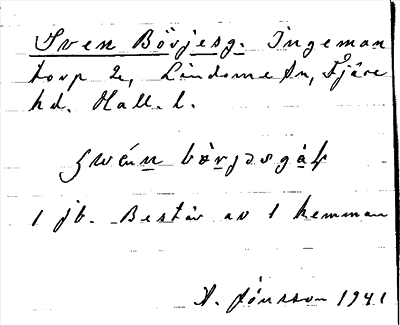 Sven Börjesg. Ingeman
torp 2, Lindome sn, Fjäre
hd. Hall. l.
1 jb. Består av 1 hemman
A. Jönsson 1941